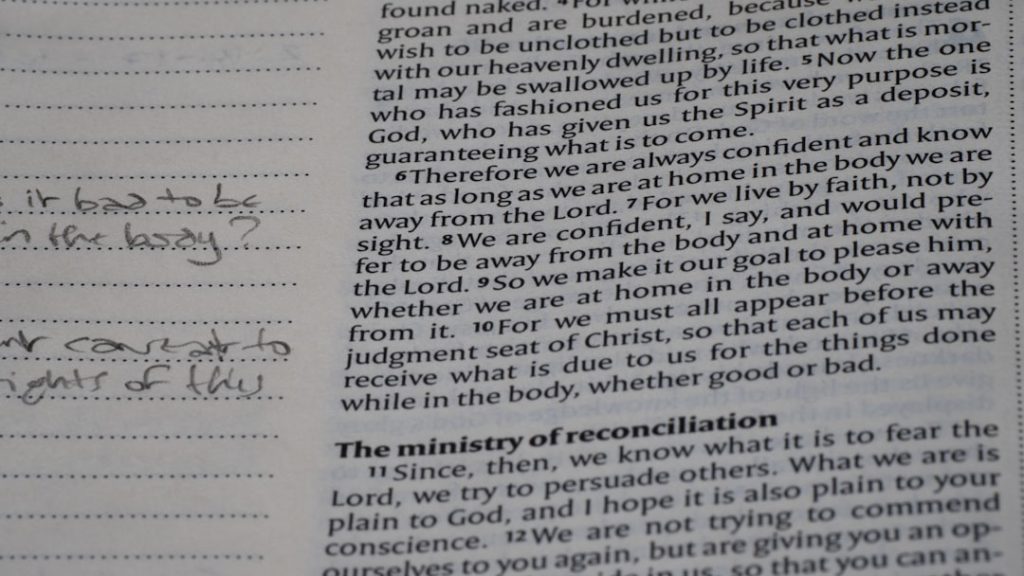 it bad to be
in the body?
caveat to
rights of this
found naked. 4For
groan and are burdened, because
wish to be unclothed but to be clothed instead
with our heavenly dwelling, so that what is mor-
tal may be swallowed up by life. 5Now the one
who has fashioned us for this very purpose is
God, who has given us the Spirit as a deposit,
guaranteeing what is to come.
6Therefore we are always confident and know
that as long as we are at home in the body we are
away from the Lord. 7For we live by faith, not by
sight. 8We are confident, I say, and would pre-
fer to be away from the body and at home with
the Lord. 9So we make it our goal to please him,
whether we are at home in the body or away
from it. 10For we must all appear before the
judgment seat of Christ, so that each of us may
receive what is due to us for the things done
while in the body, whether good or bad.
The ministry of reconciliation
11Since, then, we know what it is to fear the
Lord, we try to persuade others. What we are is
plain to God, and I hope it is also plain to your
conscience. 12We are not trying to commend
ourselves to you again, but are giving you an op-
in us, so that you can an-